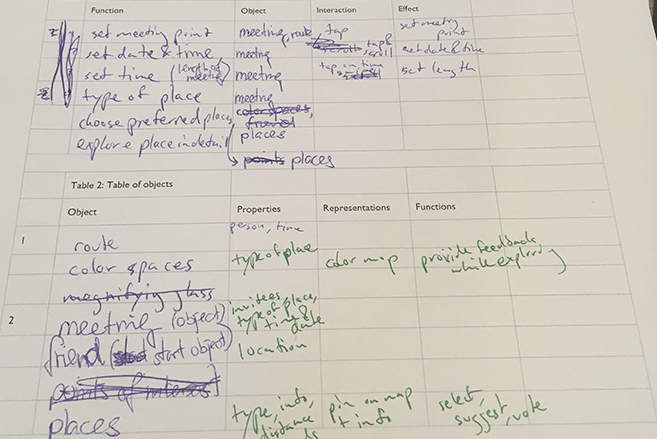 Function Object Interaction Effect
set meeting point meeting, route, tap set meeting point
set date & time meeting tap & scroll set date & time
set time (length of meeting) meeting tap on time set length
type of place meeting
choose preferred places, color spaces, friend places
explore place in detail points places
Table 2: Table of objects
Object Properties Representations Functions
1 route person, time
color spaces type of place color map provide feedback while exploring
magnifying glass
2 meeting (object) invitees, type of place, date
friend (start object) location
points of interest
places type, info, distance pin on map + info select, suggest, vote